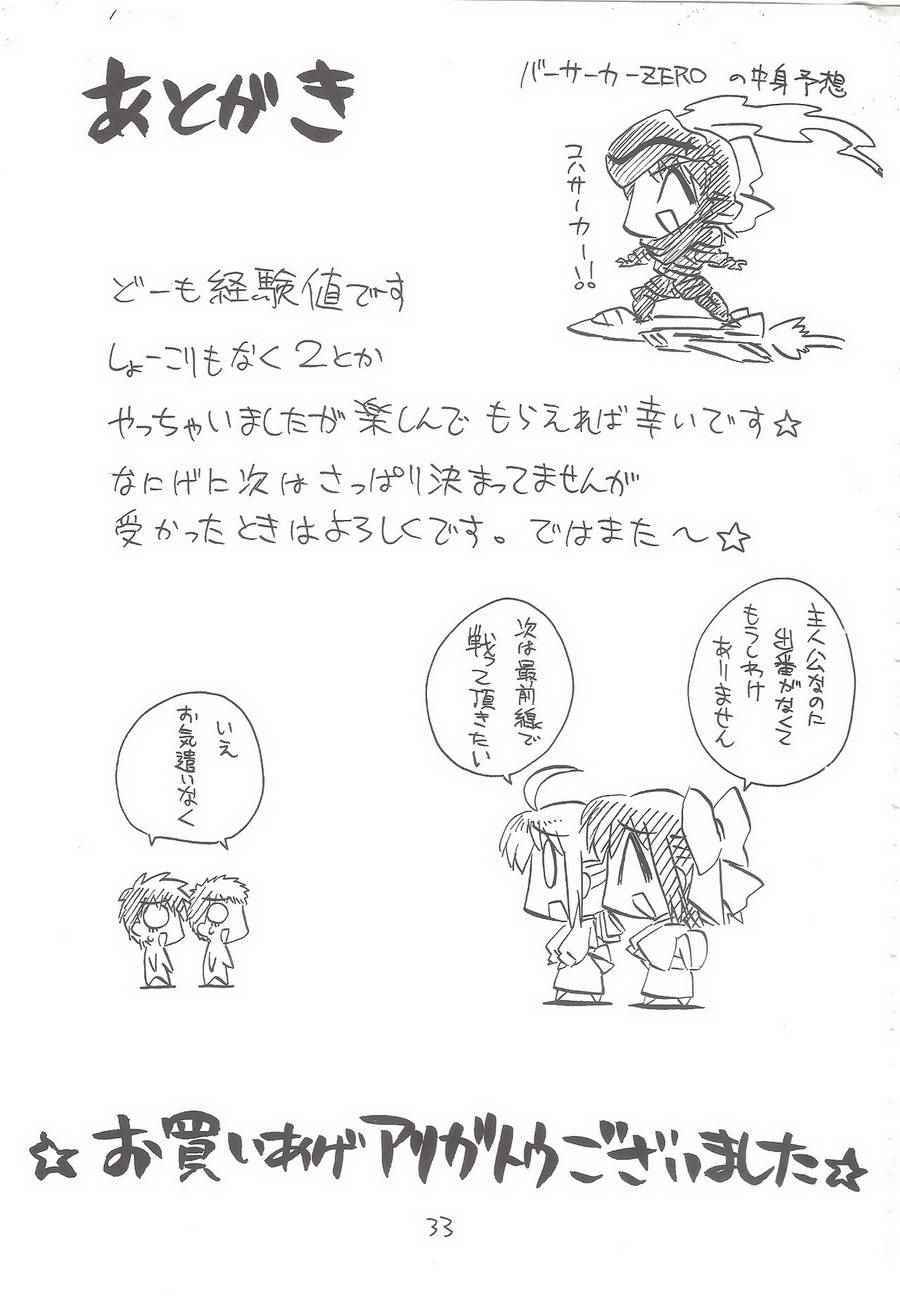 あとがき
バーサーカーZERO の中身予想
コハサーカー!!
どーも経験値です
しょーこりもなく2とか
やっちゃいましたが楽しんで もらえれば幸いです☆
なにげに次はさっぱり決まってませんが
受かったときはよろしくです。ではまた〜☆
主人公なのに
出番がなくて
もうしわけ
ありません
次は最前線で
戦って頂きたい
いえ
お気遣いなく
☆お買いあげアリガトウございました☆
33